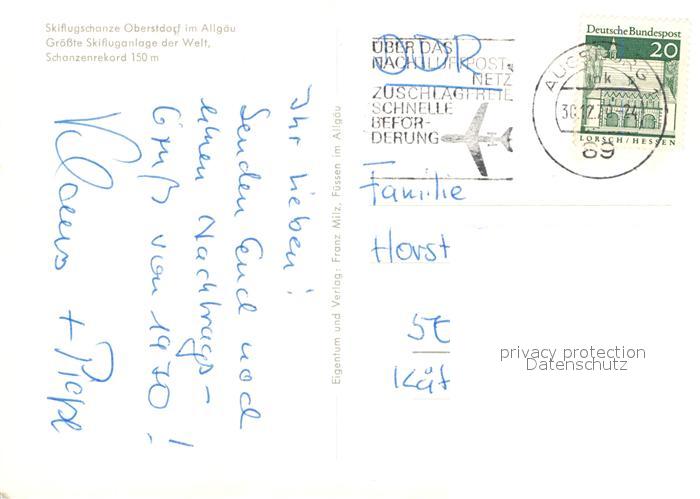 Skiflugschanze Oberstdorf im Allgäu
Größte Skifluganlage der Welt,
Schanzenrekord 150 m
Ihr Lieben!
Senden Euch noch
einen Nachtrags-
Gruß von 1970!
Klaus +
Eigentum und Verlag: Franz Milz, Füssen im Allgäu
DDR
ÜBER DAS
NACHTLUFTPOST-
NETZ
ZUSCHLAGFREIE
SCHNELLE
BEFÖR-
DERUNG
AUGSBURG
89
Deutsche Bundespost
20
LORSCH/HESSEN
Familie
Horst
privacy protection
Datenschutz